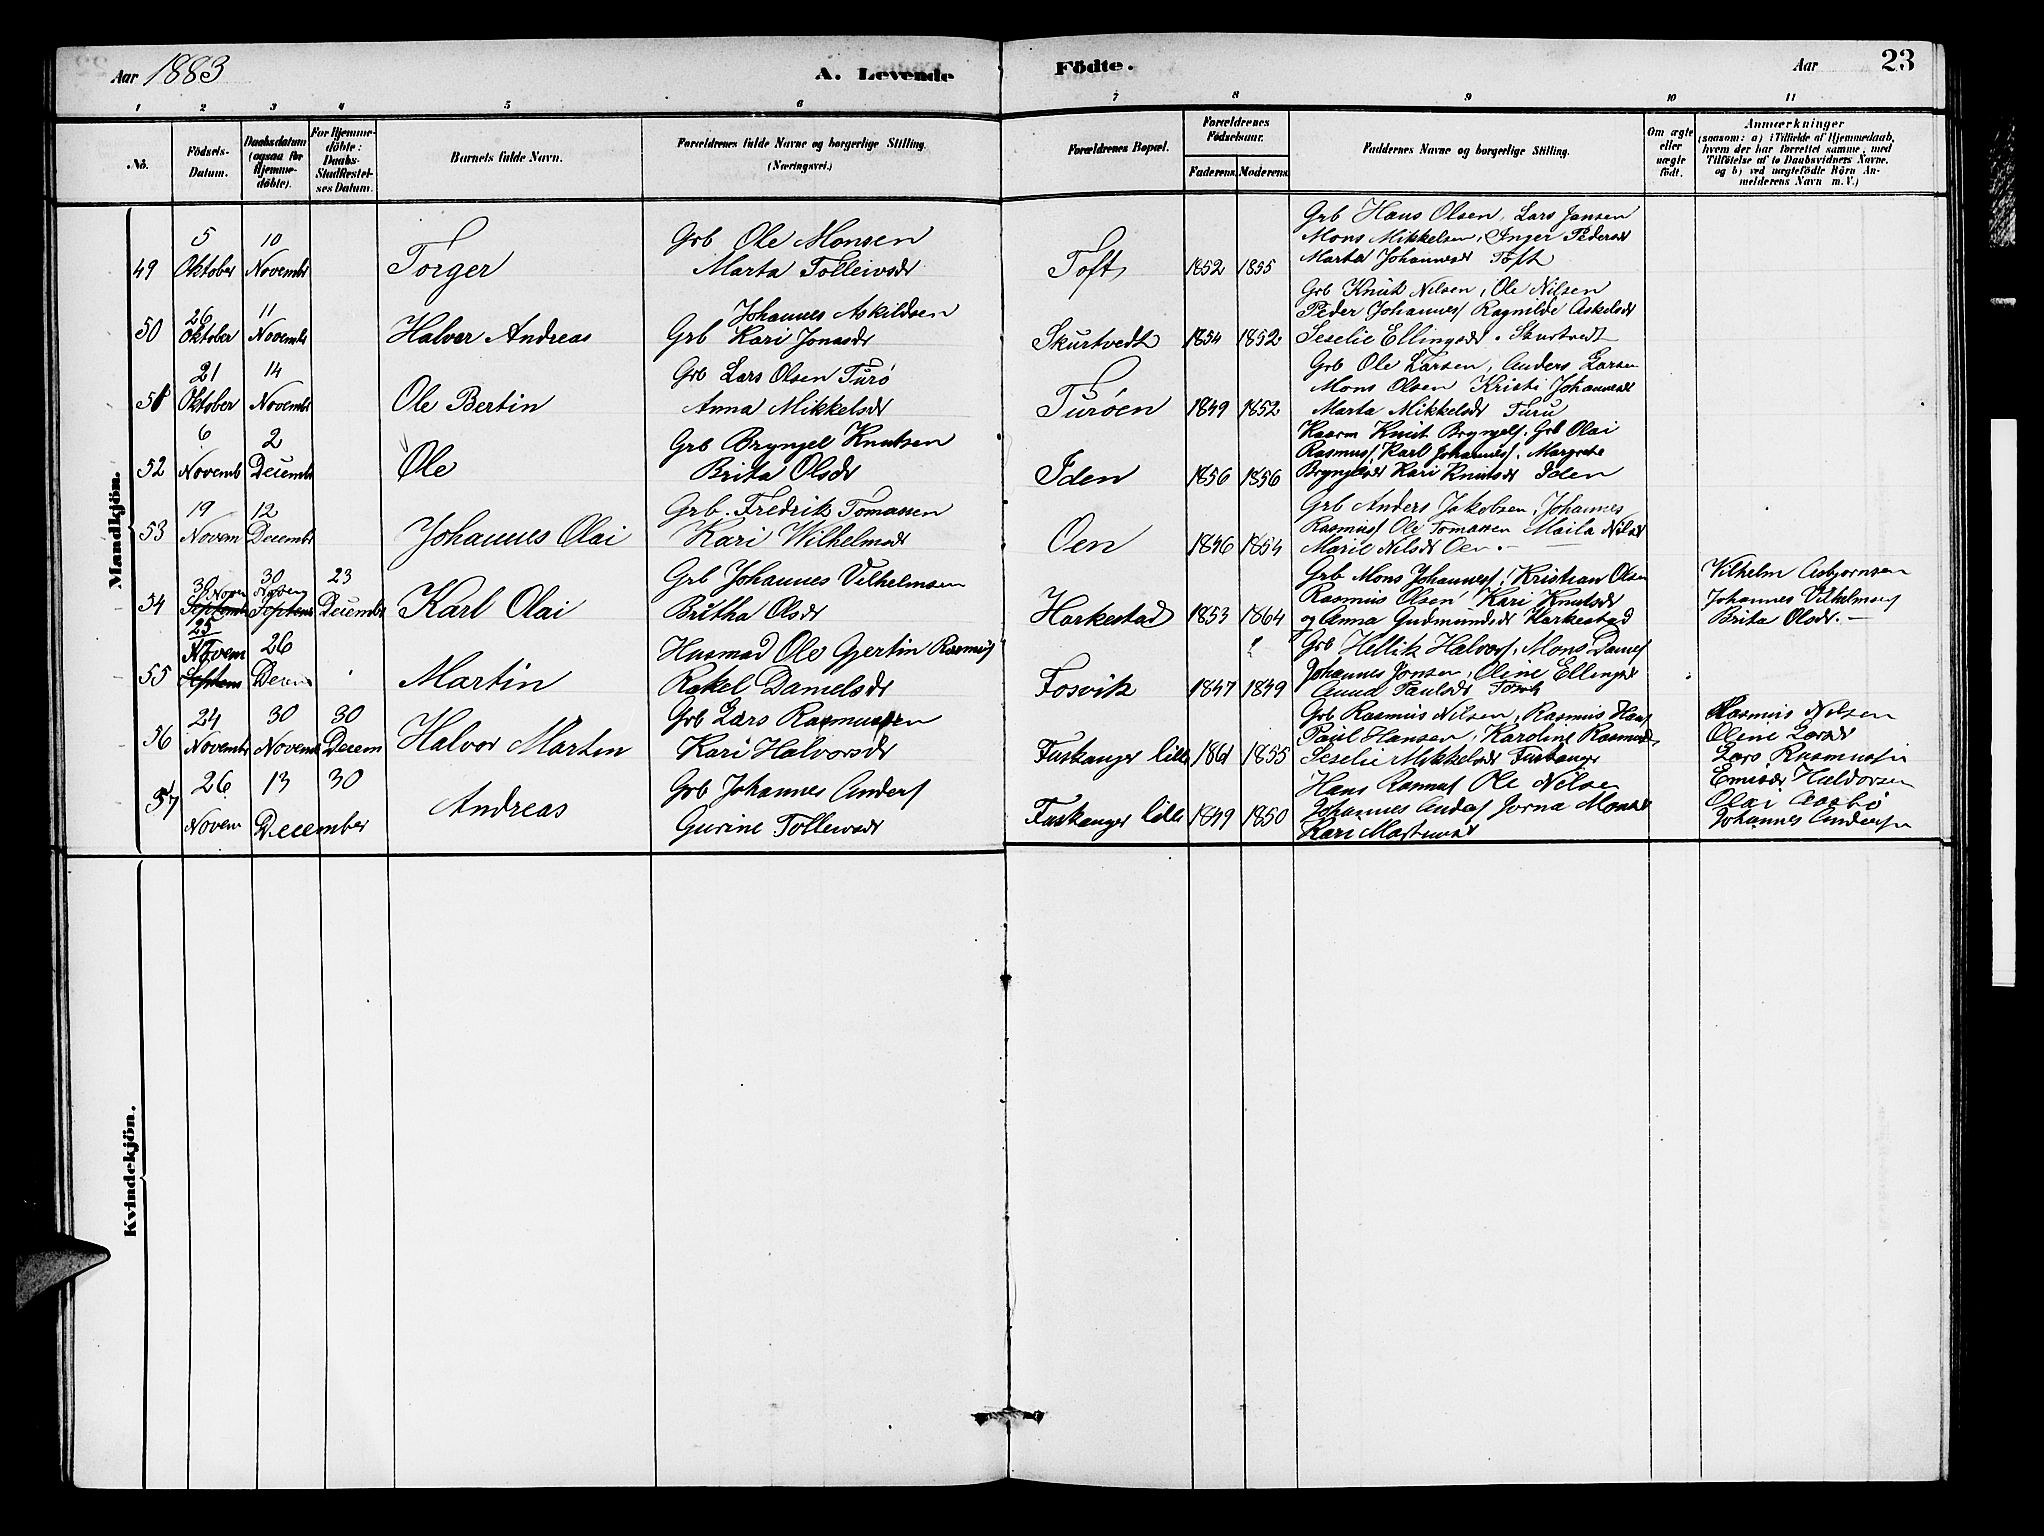 Aar 1883
A. Levende Födte.
Aar 23
1 2 3 4 5 6 7 8 9 10 11
No.
Födsels-Datum.
Daabsdatum (ogsaa for Hjemme-döbte).
For Hjemme-döbte: Daabs-Stadfæstel-ses Datum.
Barnets fulde Navn.
Forældrenes fulde Navne og borgerlige Stilling. (Næringsvei.)
Forældrenes Bopæl.
Forældrenes Födselsaar.
Faderens. Moderens.
Faddernes Navne og borgerlige Stilling.
Om ægte eller uægte födt.
Anmærkninger
(saasom: a) i Tilfælde af Hjemmedaab, hvem der har forrettet samme, med Tilföielse af to Daabsvidners Navne, og b) ved uægtefödte Börn An-melderens Navn m. V.)
Mandkjön.
49 5 Oktober 10 Novembr Torger
Grb Ole Monsen
Marta Tolleivsdr
Toft 1852 1855
Grb Hans Olsen, Lars Jansen
Mons Mikkelsen, Inger Pedersdr
Marta Johannesdr Toft
50 26 Oktober 11 Novembr Halvor Andreas
Johannes Askildsen
Grb Kari Jonasdr
Skurtvedt 1854 1852
Grb Knut Nilsen, Ole Nilsen
Peder Johannes Ragnilde Askelsdr
Seselie Ellingsdr. Skurtvedt
51 21 Oktober 14 Novembr Ole Bertin
Grb Lars Olsen Turö
Anna Mikkelsdr
Turöen 1849 1852
Grb Ole Larsen, Anders Larsen
Mons Olsen Kristi Johannesdr
Marta Mikkelsdr Turu
52 6 Novemb 2 Decembr Ole
Grb Brynjel Knutsen
Brita Olsdr
Iden 1856 1856
Kaarm Knut Brynjels, Grb Olai
Rasmus, Karl Johannes, Margrete
Brynjelsdr Kari Knutsdr Iden
53 19 Novem 12 Decembr Johannes Olai
Grb. Fredrik Tomassen
Kari Wilhelmsdr
Oen 1846 1854
Grb Anders Jakobsen, Johannes
Rasmus Ole Tomassen Maila Nilsdr
Marie Nilsdr Oen. —
54 30 Novem Septemb 30 Novem Septem 23 Decembr Karl Olai
Grb Johannes Vilhelmsen
Britha Olsdr
Harkestad 1853 1864
Grb Mons Johannes, Kristian Olsen
Rasmus Olsen Kari Knutsdr
og Anna Gudmundsdr Harkestad
Vilhelm Asbjornsen
Johannes Vilhelmsen
Brita Olsdr. —
55 25 Novem Septem 26 Decem Martin
Husmad Ole Gjertin Rasmus
Rakel Danielsdr
Fosvik 1847 1849
Grb Hellik Halvors, Mons Daniels
Johannes Jonsen, Oline Ellingsdr
Anna Paulsdr Fosvik
56 24 Novembr 30 Novem 30 Decem Halvor Martin
Grb Lars Rasmussen
Kari Halvorsdr
Turkanger lille 1861 1855
Grb Rasmus Nilsen, Rasmus Hans
Paul Hansen, Karoline Rasmusdr
Seselie Mikkelsdr Turkanger
Rasmus Nilsen
Oline Larsdr
Lars Rasmussen
57 26 Novem 13 December 30 Andreas
Grb Johannes Anders
Gurine Tolleivsdr
Turkanger lille 1849 1850
Hans Rasmus Ole Nilsen
Johannes Anders Jorna Monsdr
Kari Martinsdr
Haldorsen
Olai Aasbö
Johannes Andersen
Kvindekjön.